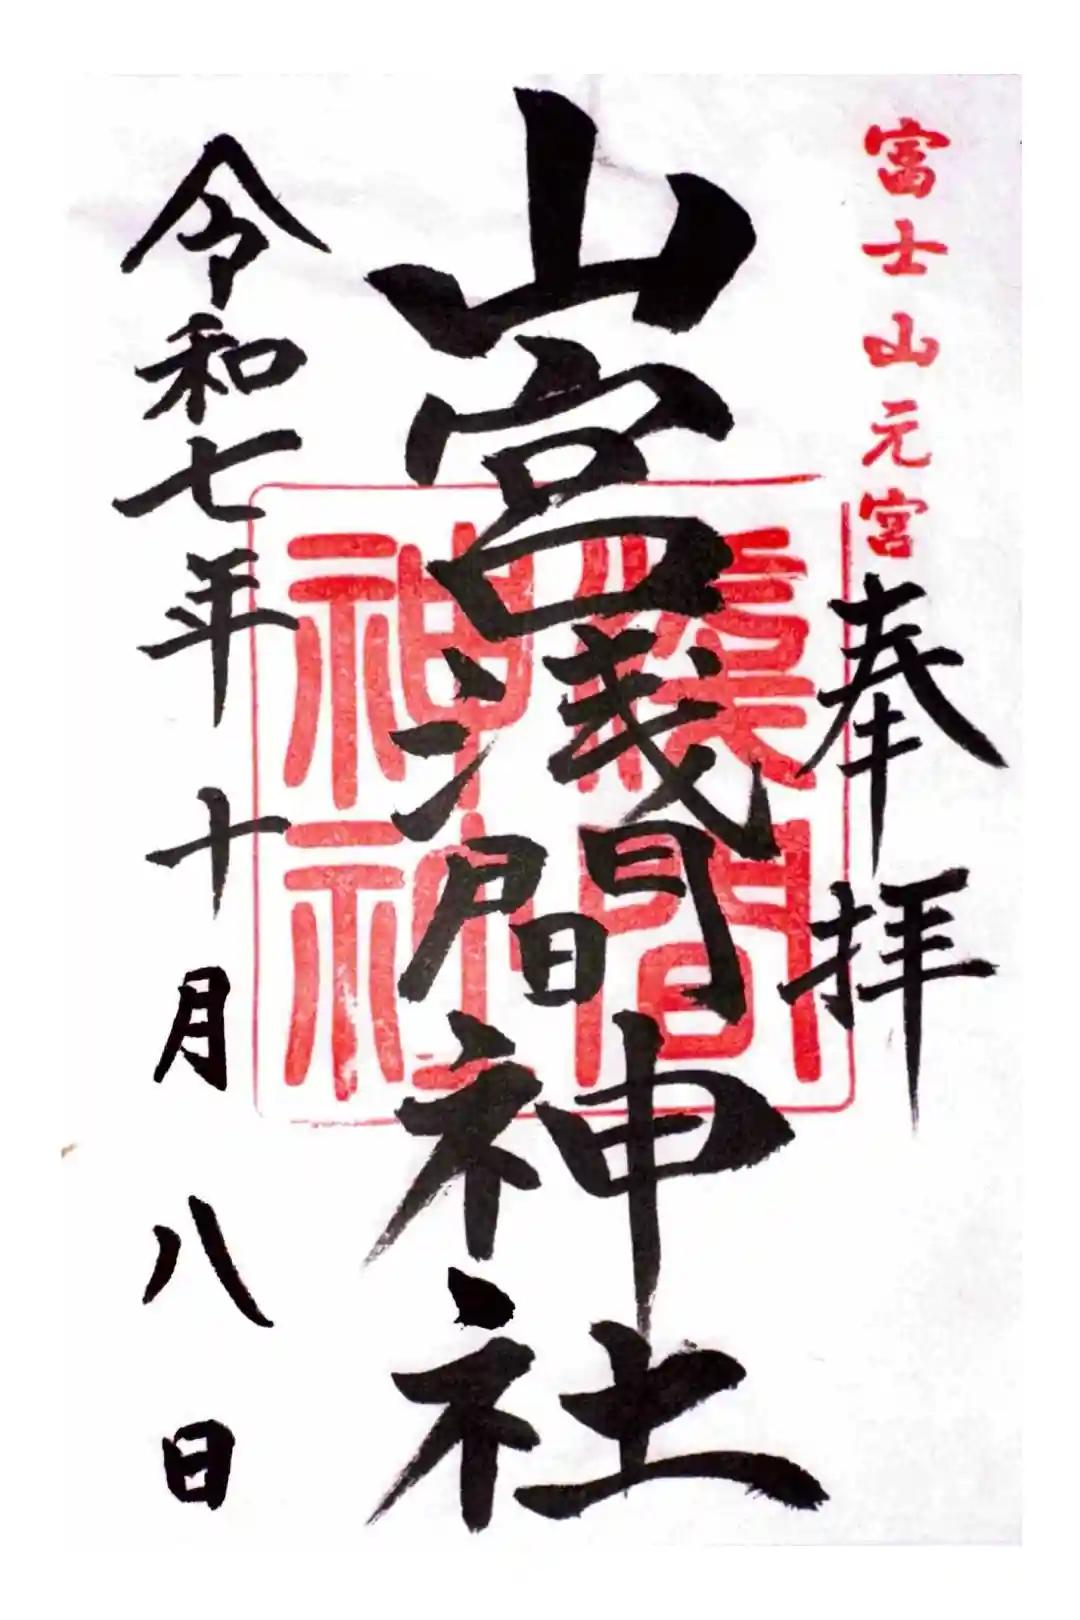 富士山元宮
奉拝
山宮浅間神社
浅間
神社
令和七年十月八日